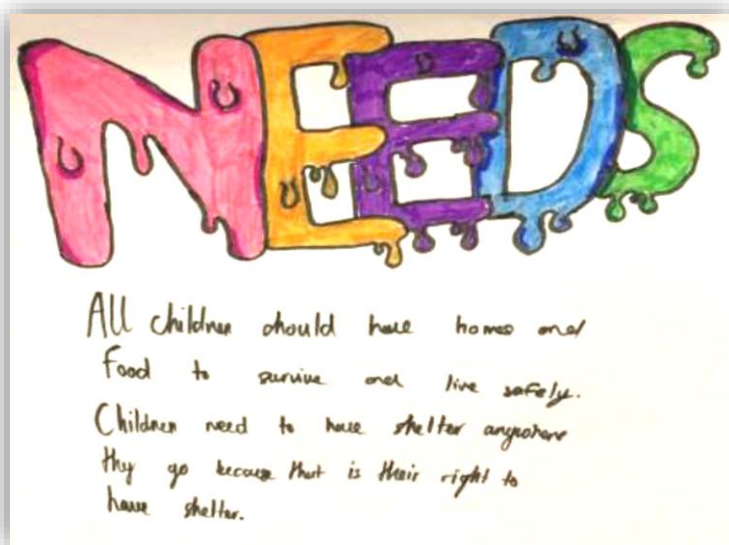 NEEDS
All children should have homes and
food to survive and live safely.
Children need to have shelter anywhere
they go because that is their right to
have shelter.